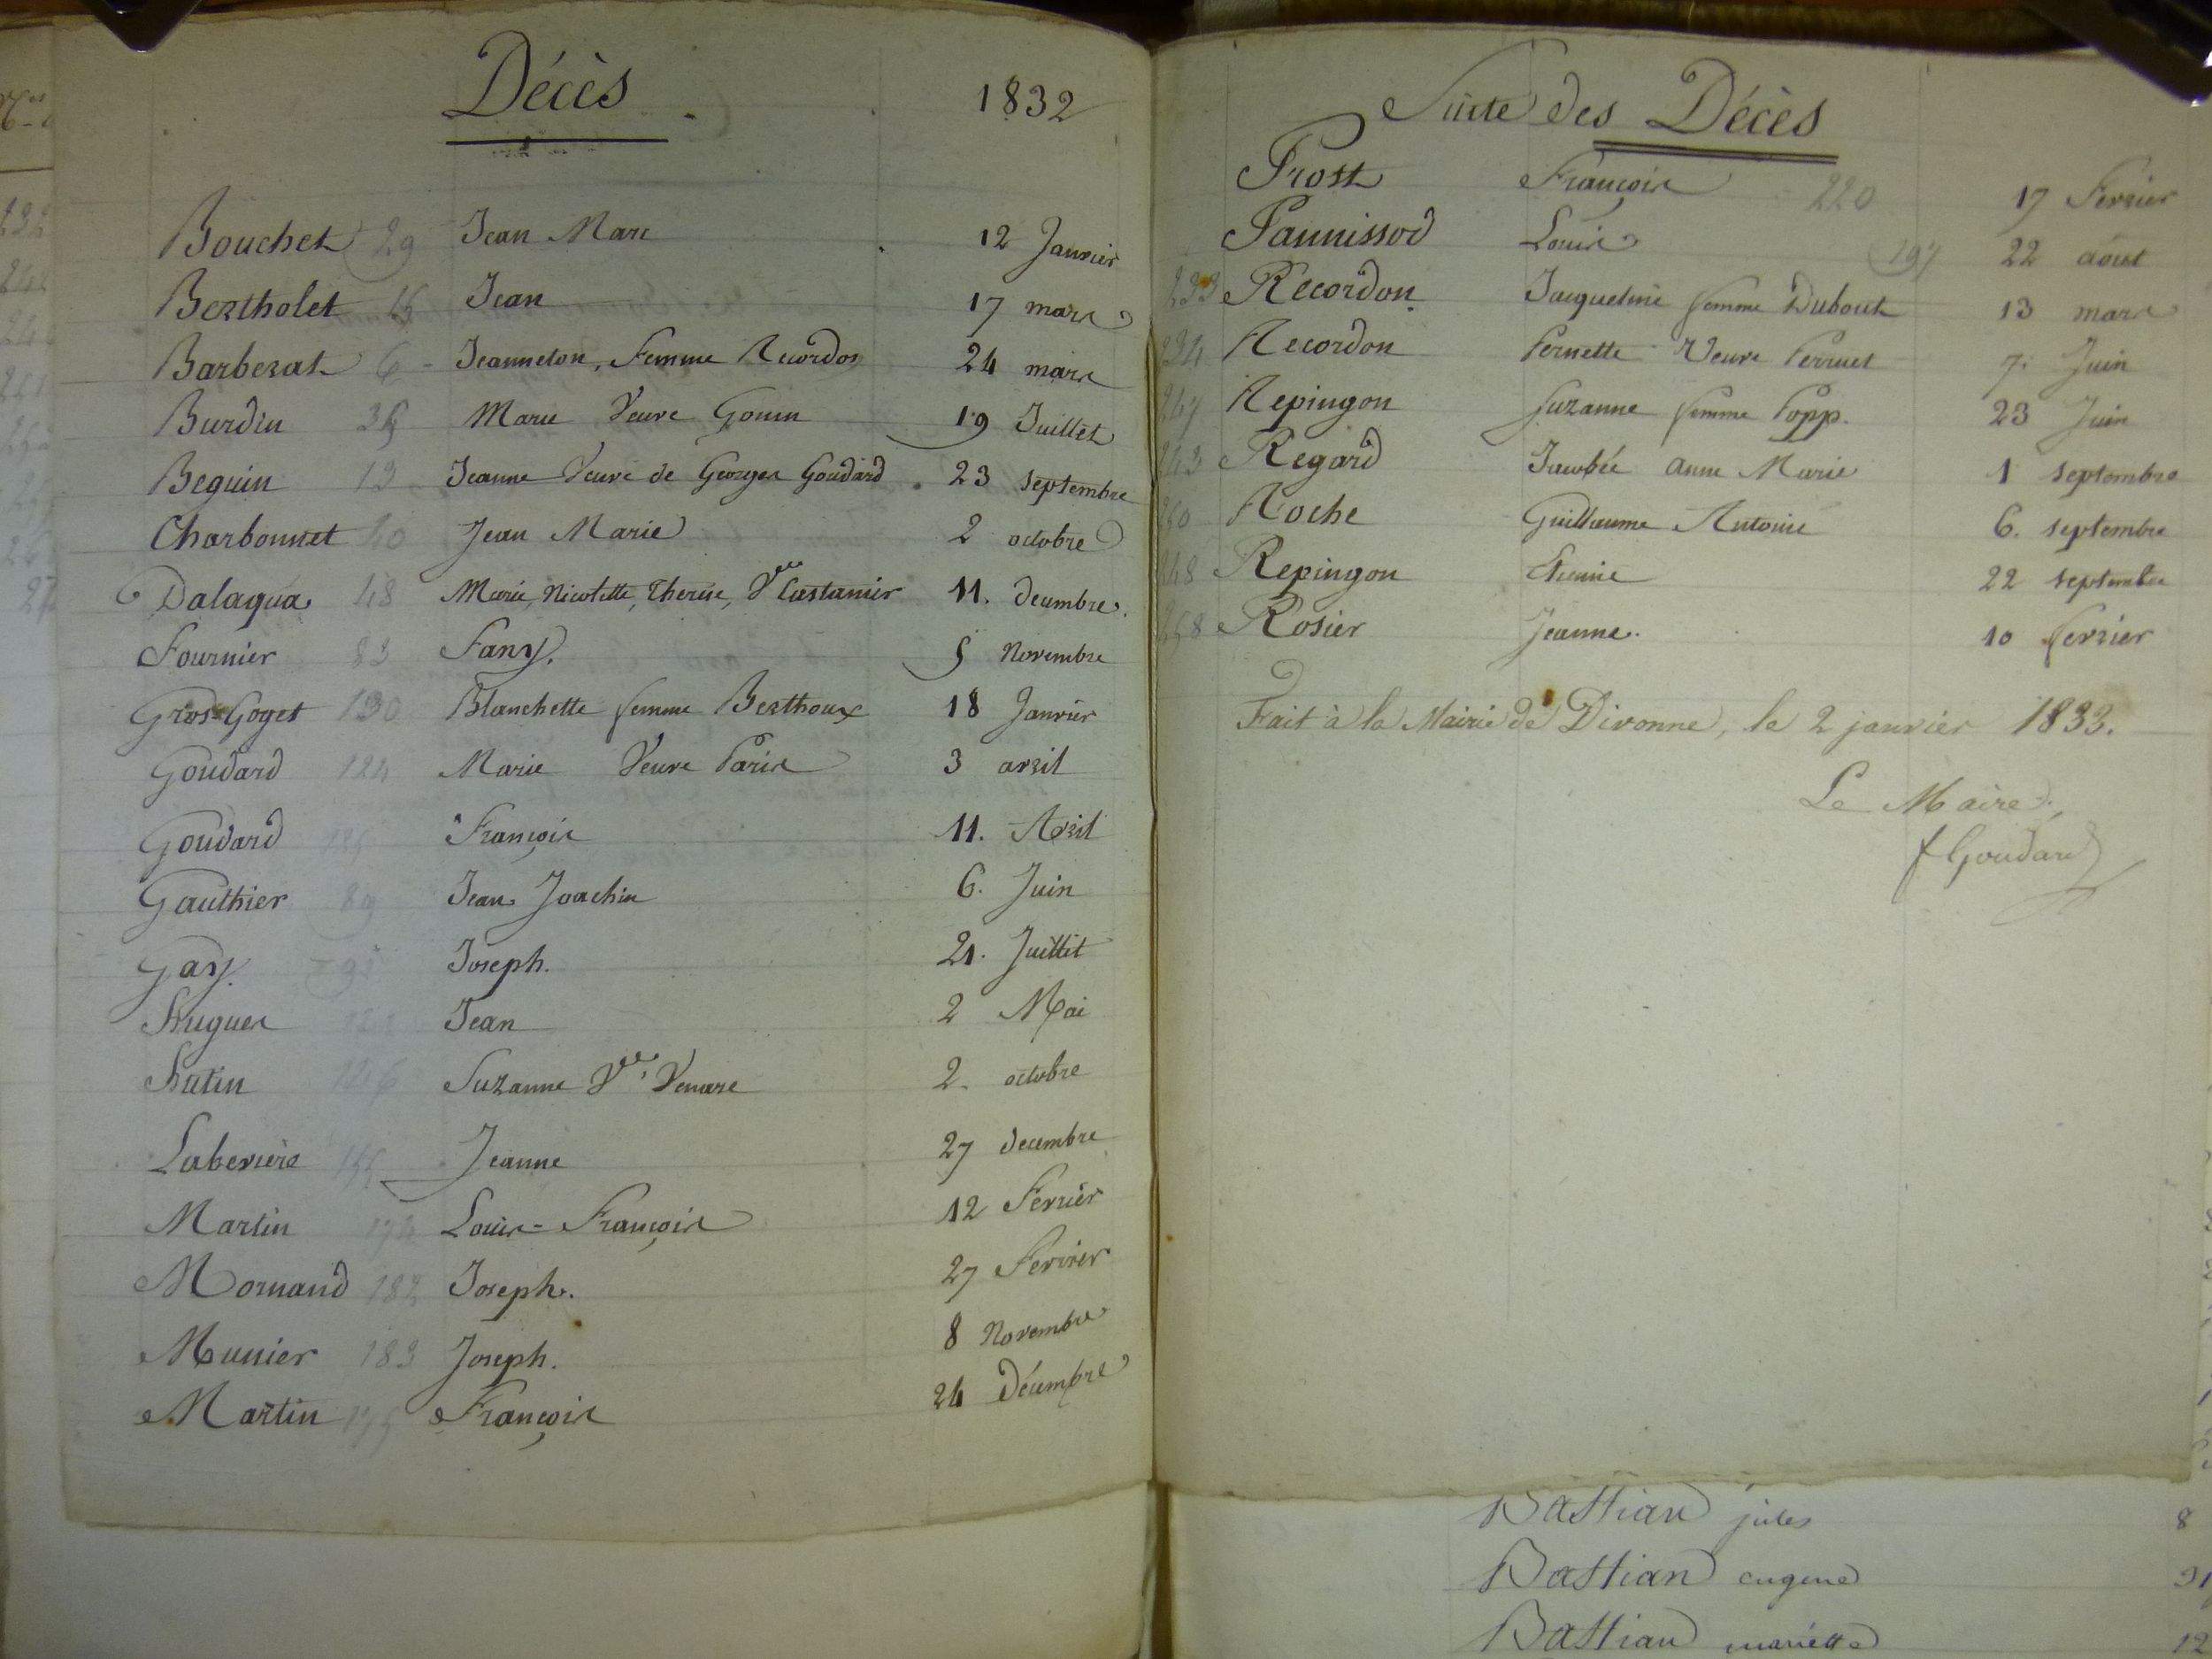 Décès 1832
Bouchet 29 Jean Marc 12 Janvier
Bertholet 15 Jean 17 mars
Barbezat 6 Jeanneton, Femme Recordon 24 mars
Burdin 35 Marie Veuve Gonin 19 Juillet
Beguin 13 Jeanne Veuve de Georges Goudard 23 septembre
Charbonnet 40 Jean Marie 2 octobre
Dalaqua 48 Marie, Nicolette, Therese, Vve Castanier 11. decembre
Fournier 83 Fany. 5 Novembre
Gros-Goget 130 Blanchette femme Berthoux 18 Janvier
Goudard 124 Marie Veuve Paris 3 avril
Goudard 125 François 11. Avril
Gauthier 89 Jean Joachim 6. Juin
Gay. Joseph. 21. Juillet
Hugues Jean 2 Mai
Hutin Suzanne Vve 2 octobre
Jeanne 27 decembre
Martin 174 Louis-François 12 Fevrier
Mornand 182 Joseph. 27 Fevrier
Munier 183 Joseph. 8 Novembre
Martin 175 François 24 Décembre
Suite des Décès
Prost François 220 17 Fevrier
Pannissod Louis 197 22 aout
233 Recordon Jacqueline femme Dubout 13 mars
234 Recordon Pernette Veuve Perruet 7. Juin
247 Repingon Suzanne femme Popp. 23 Juin
243 Regard Jacobée anne Marie 1 septembre
250 Roche Guillaume Antoine 6. septembre
248 Repingon Etienne 22 septembre
258 Rosier Jeanne. 10 fevrier
Fait à la Mairie de Divonne, le 2 janvier 1833.
Le Maire,
f Goudard
Bastian jules 8
Bastian eugene 31
Bastian mariette 12